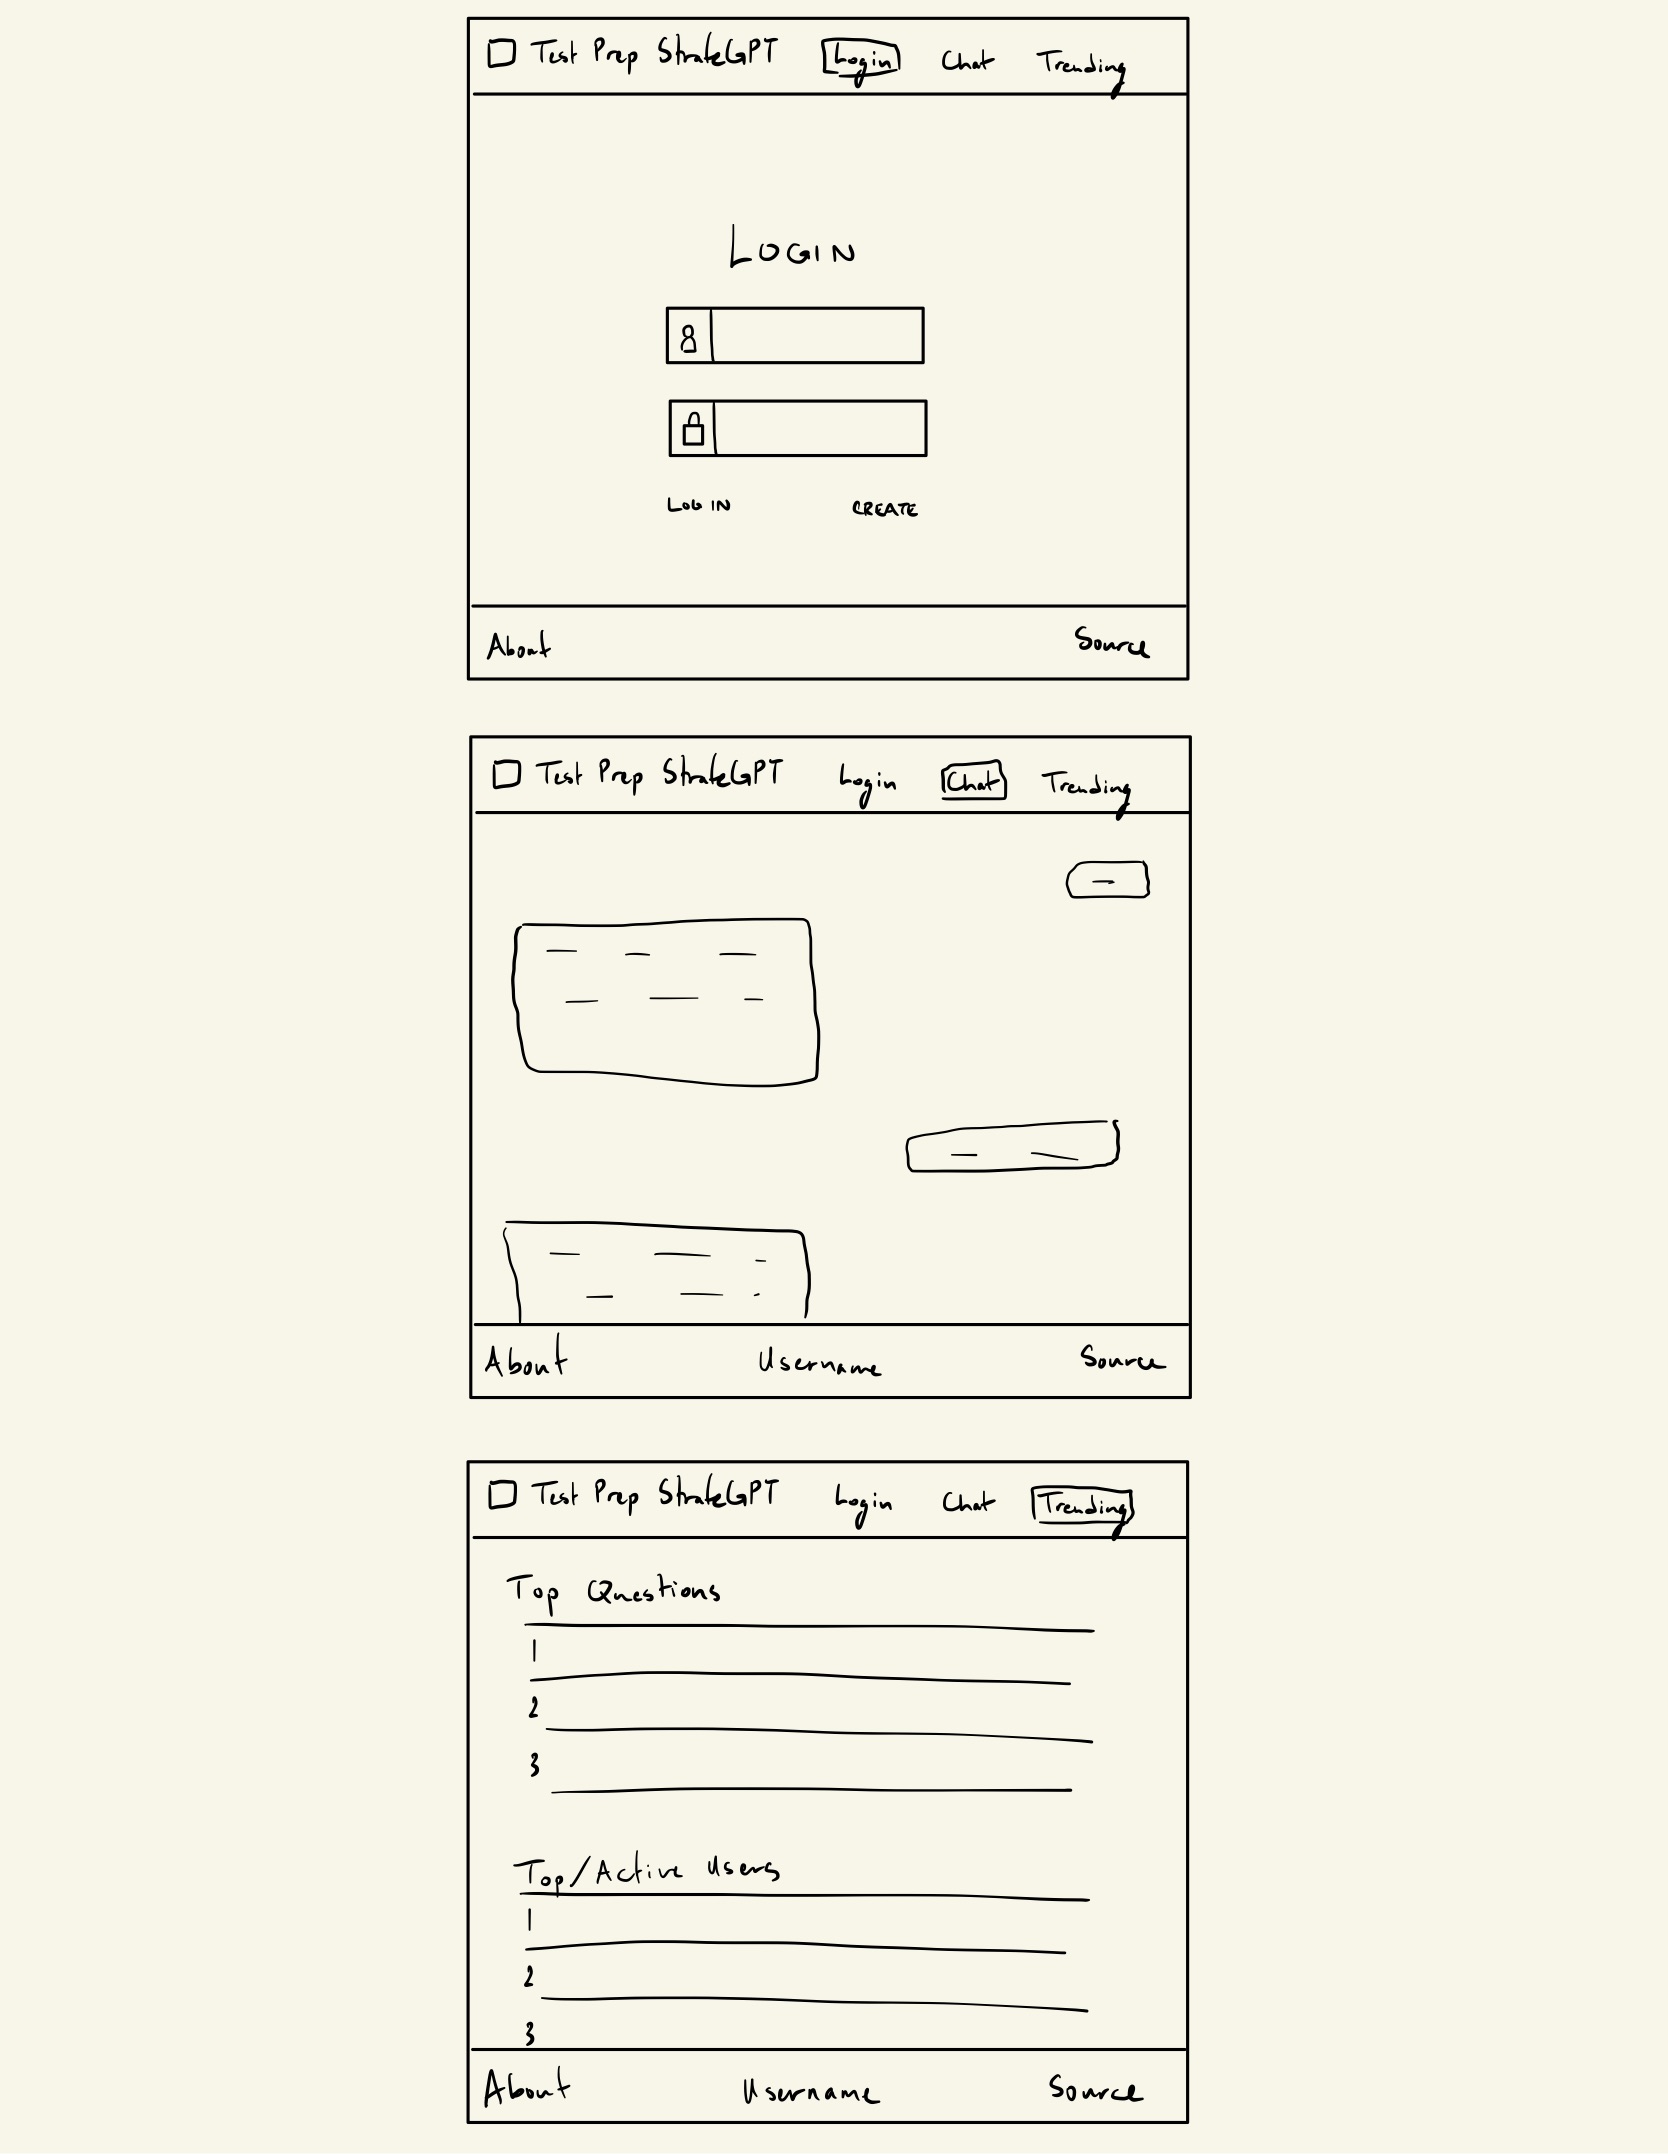 Test Prep StrateGPT Login Chat Trending
LOGIN
LOG IN CREATE
About Source
Test Prep StrateGPT Login Chat Trending
About Username Source
Test Prep StrateGPT Login Chat Trending
Top Questions
1
2
3
Top/Active Users
1
2
3
About Username Source